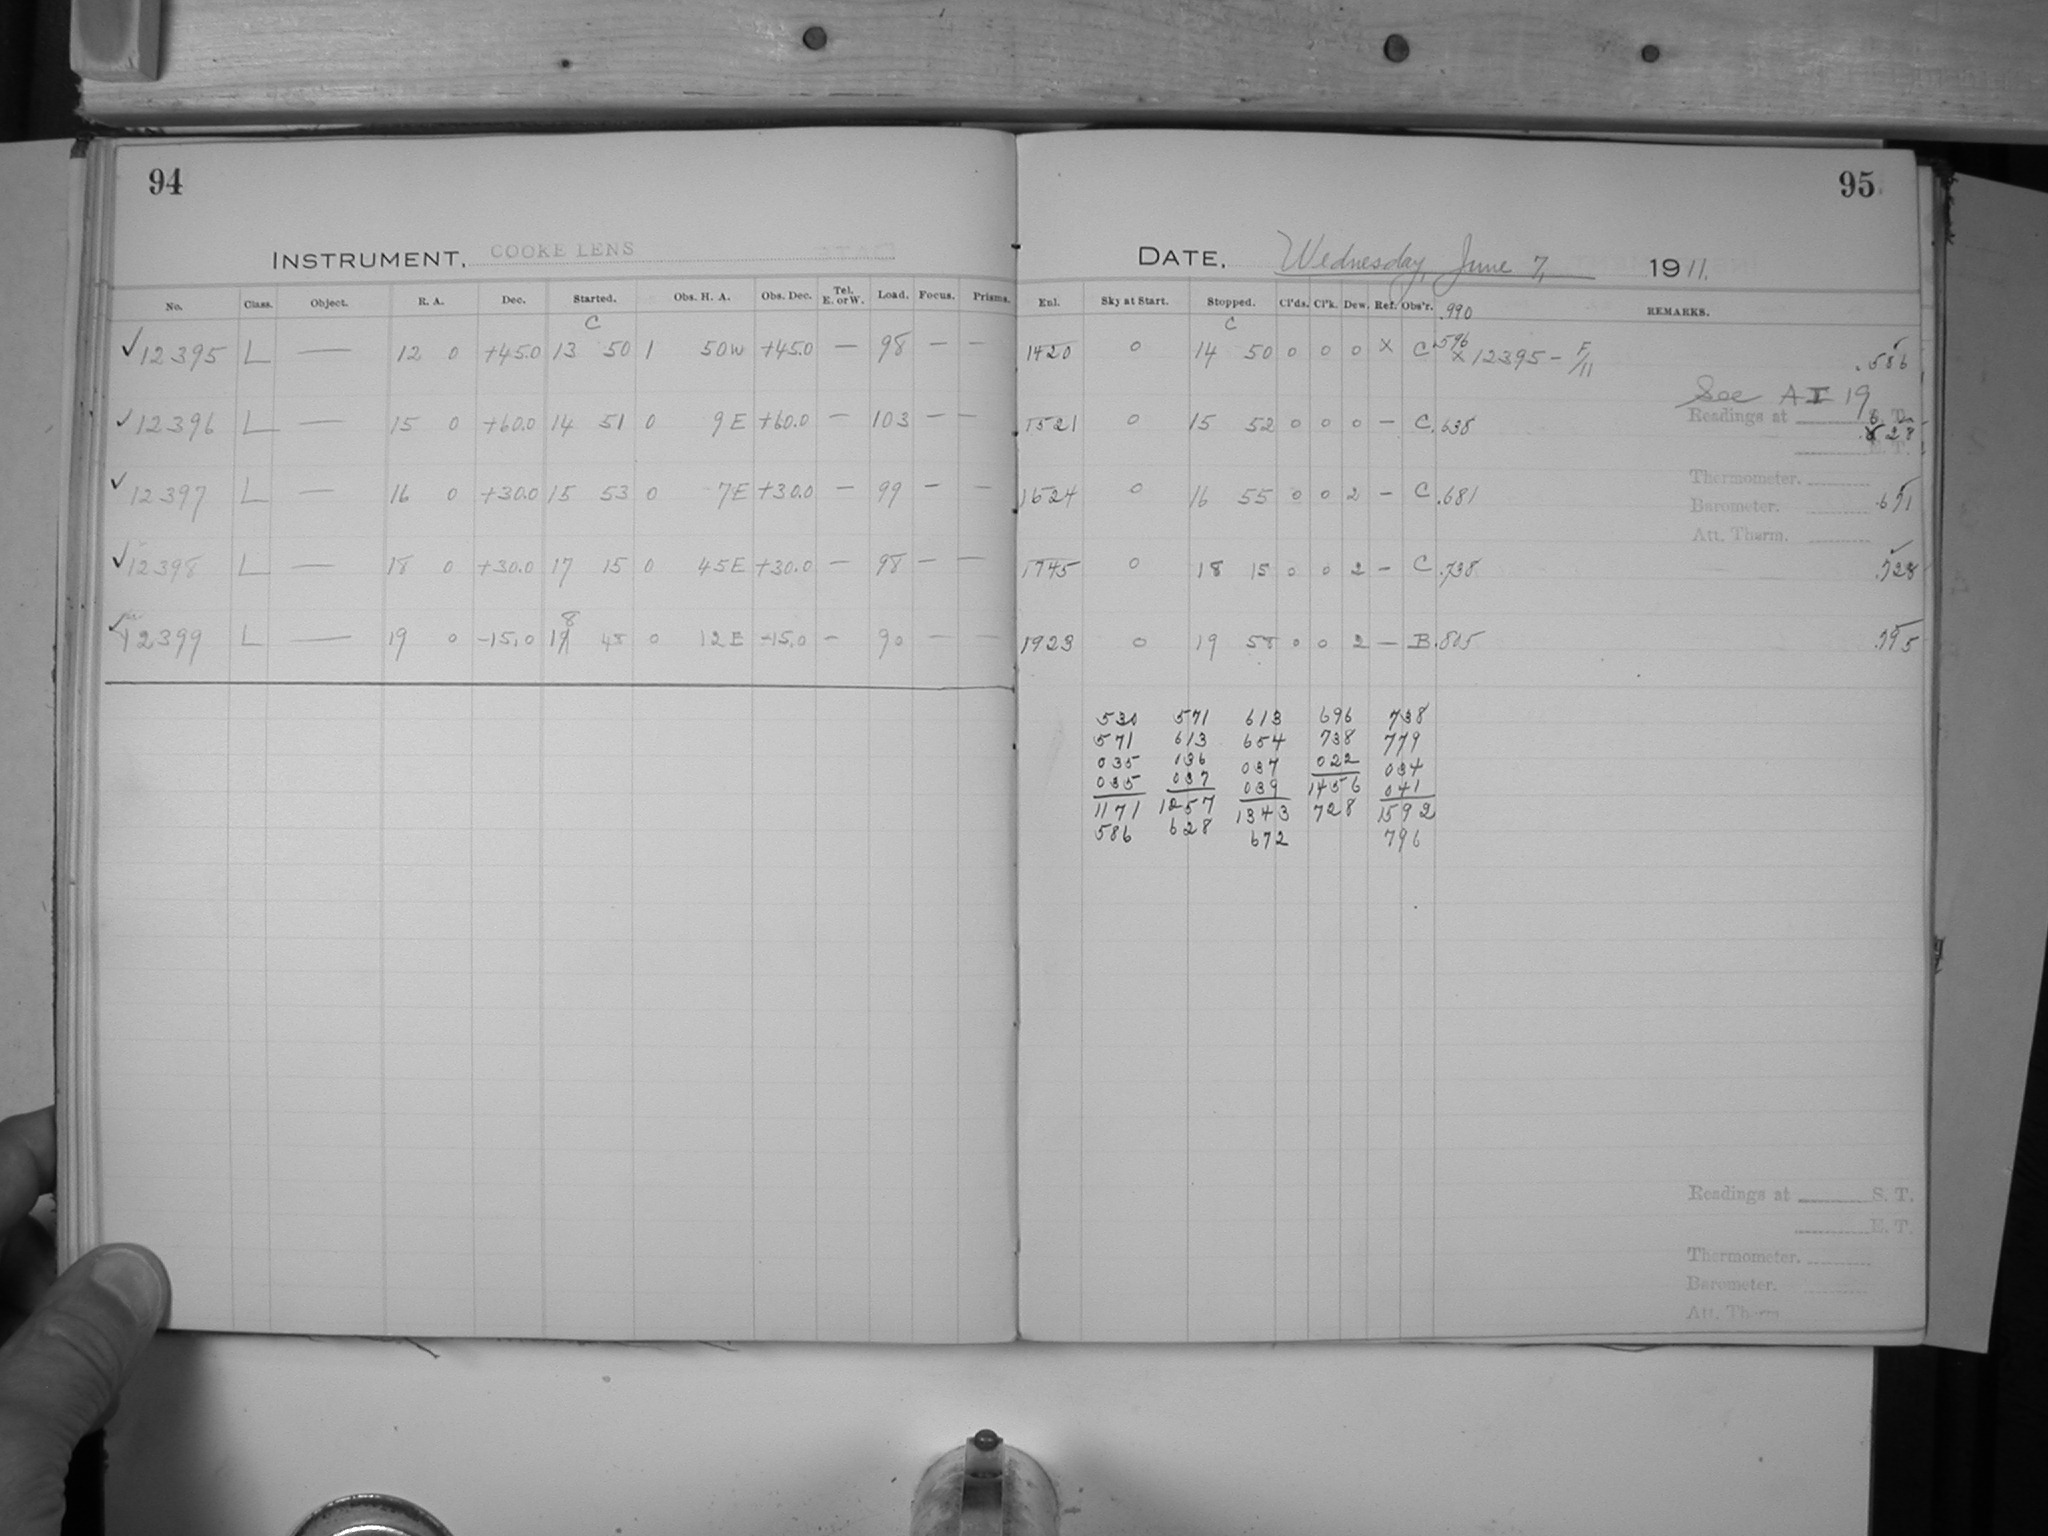 94
INSTRUMENT. COOKE LENS
No. Class. Object. R. A. Dec. Started. Obs. H. A. Obs. Dec. Tel. E. or W. Load. Focus. Prisms.
C
✓12395 L — 12 0 +45.0 13 50 1 50W +45.0 — 98 — —
✓12396 L — 15 0 +60.0 14 51 0 9E +60.0 — 103 — —
✓12397 L — 16 0 +30.0 15 53 0 7E +30.0 — 99 — —
✓12398 L — 18 0 +30.0 17 15 0 45E +30.0 — 98 — —
8
✓12399 L — 19 0 -15.0 19 48 0 12E -15.0 — 90 — —
95
DATE. Wednesday, June 7, 1911.
Enl. Sky at Start. Stopped. Cl'ds. Cl'k. Dew. Ref. Obs'r. .990 REMARKS.
C
1420 0 14 50 0 0 0 X C .596 X 12395 – F/11 .586
See A I 19
Readings at S. T.
1521 0 15 52 0 0 0 — C .638 .628
E. T.
Thermometer.
1624 0 16 55 0 0 2 — C .681 .671
Barometer.
Att. Therm.
1745 0 18 15 0 0 2 — C .738 .728
1923 0 19 58 0 0 2 — B .805 .795
530 571 613 696 738
571 613 654 738 779
035 136 037 022 034
035 037 039 1456 041
1171 1257 1343 728 1592
586 628 672 796
Readings at S. T.
E. T.
Thermometer.
Barometer.
Att. Therm